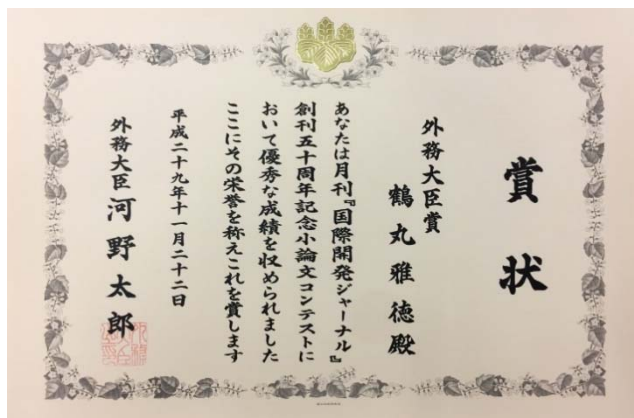 賞状
外務大臣賞
鶴丸雅徳殿
あなたは月刊『国際開発ジャーナル』
創刊五十周年記念小論文コンテストに
おいて優秀な成績を収められました
ここにその栄誉を称えこれを賞します
平成二十九年十一月二十二日
外務大臣河野太郎